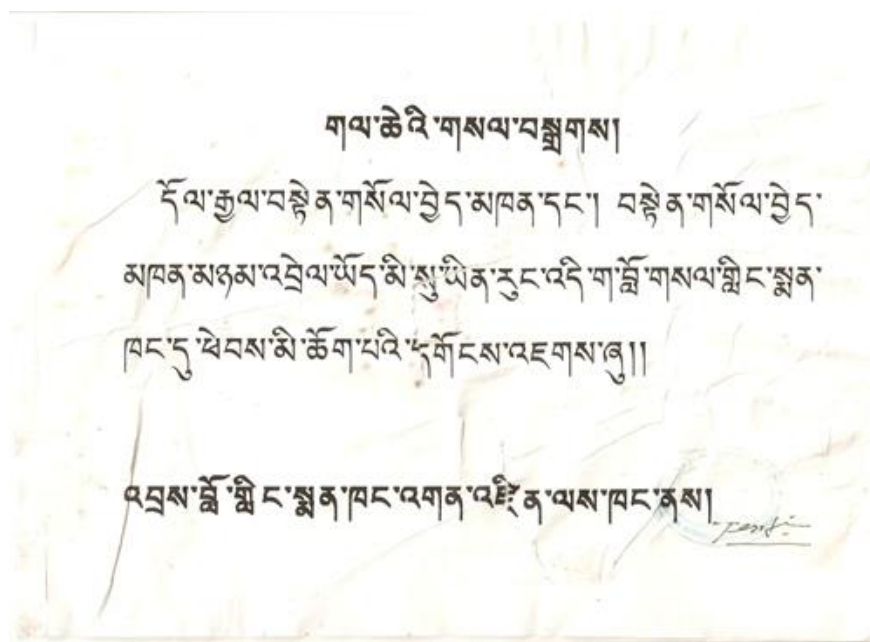 གལ་ཆེའི་གསལ་བསྒྲགས།
དོལ་རྒྱལ་བསྟེན་གསོལ་བྱེད་མཁན་དང་། བསྟེན་གསོལ་བྱེད་
མཁན་མཉམ་འབྲེལ་ཡོད་མི་སུ་ཡིན་རུང་འདི་ག་བློ་གསལ་གླིང་སྨན་
ཁང་དུ་ཕེབས་མི་ཆོག་པའི་དགོངས་འཇགས་ཞུ།།
འབྲས་བློ་གླིང་སྨན་ཁང་འགན་འཛིན་ལས་ཁང་ནས།